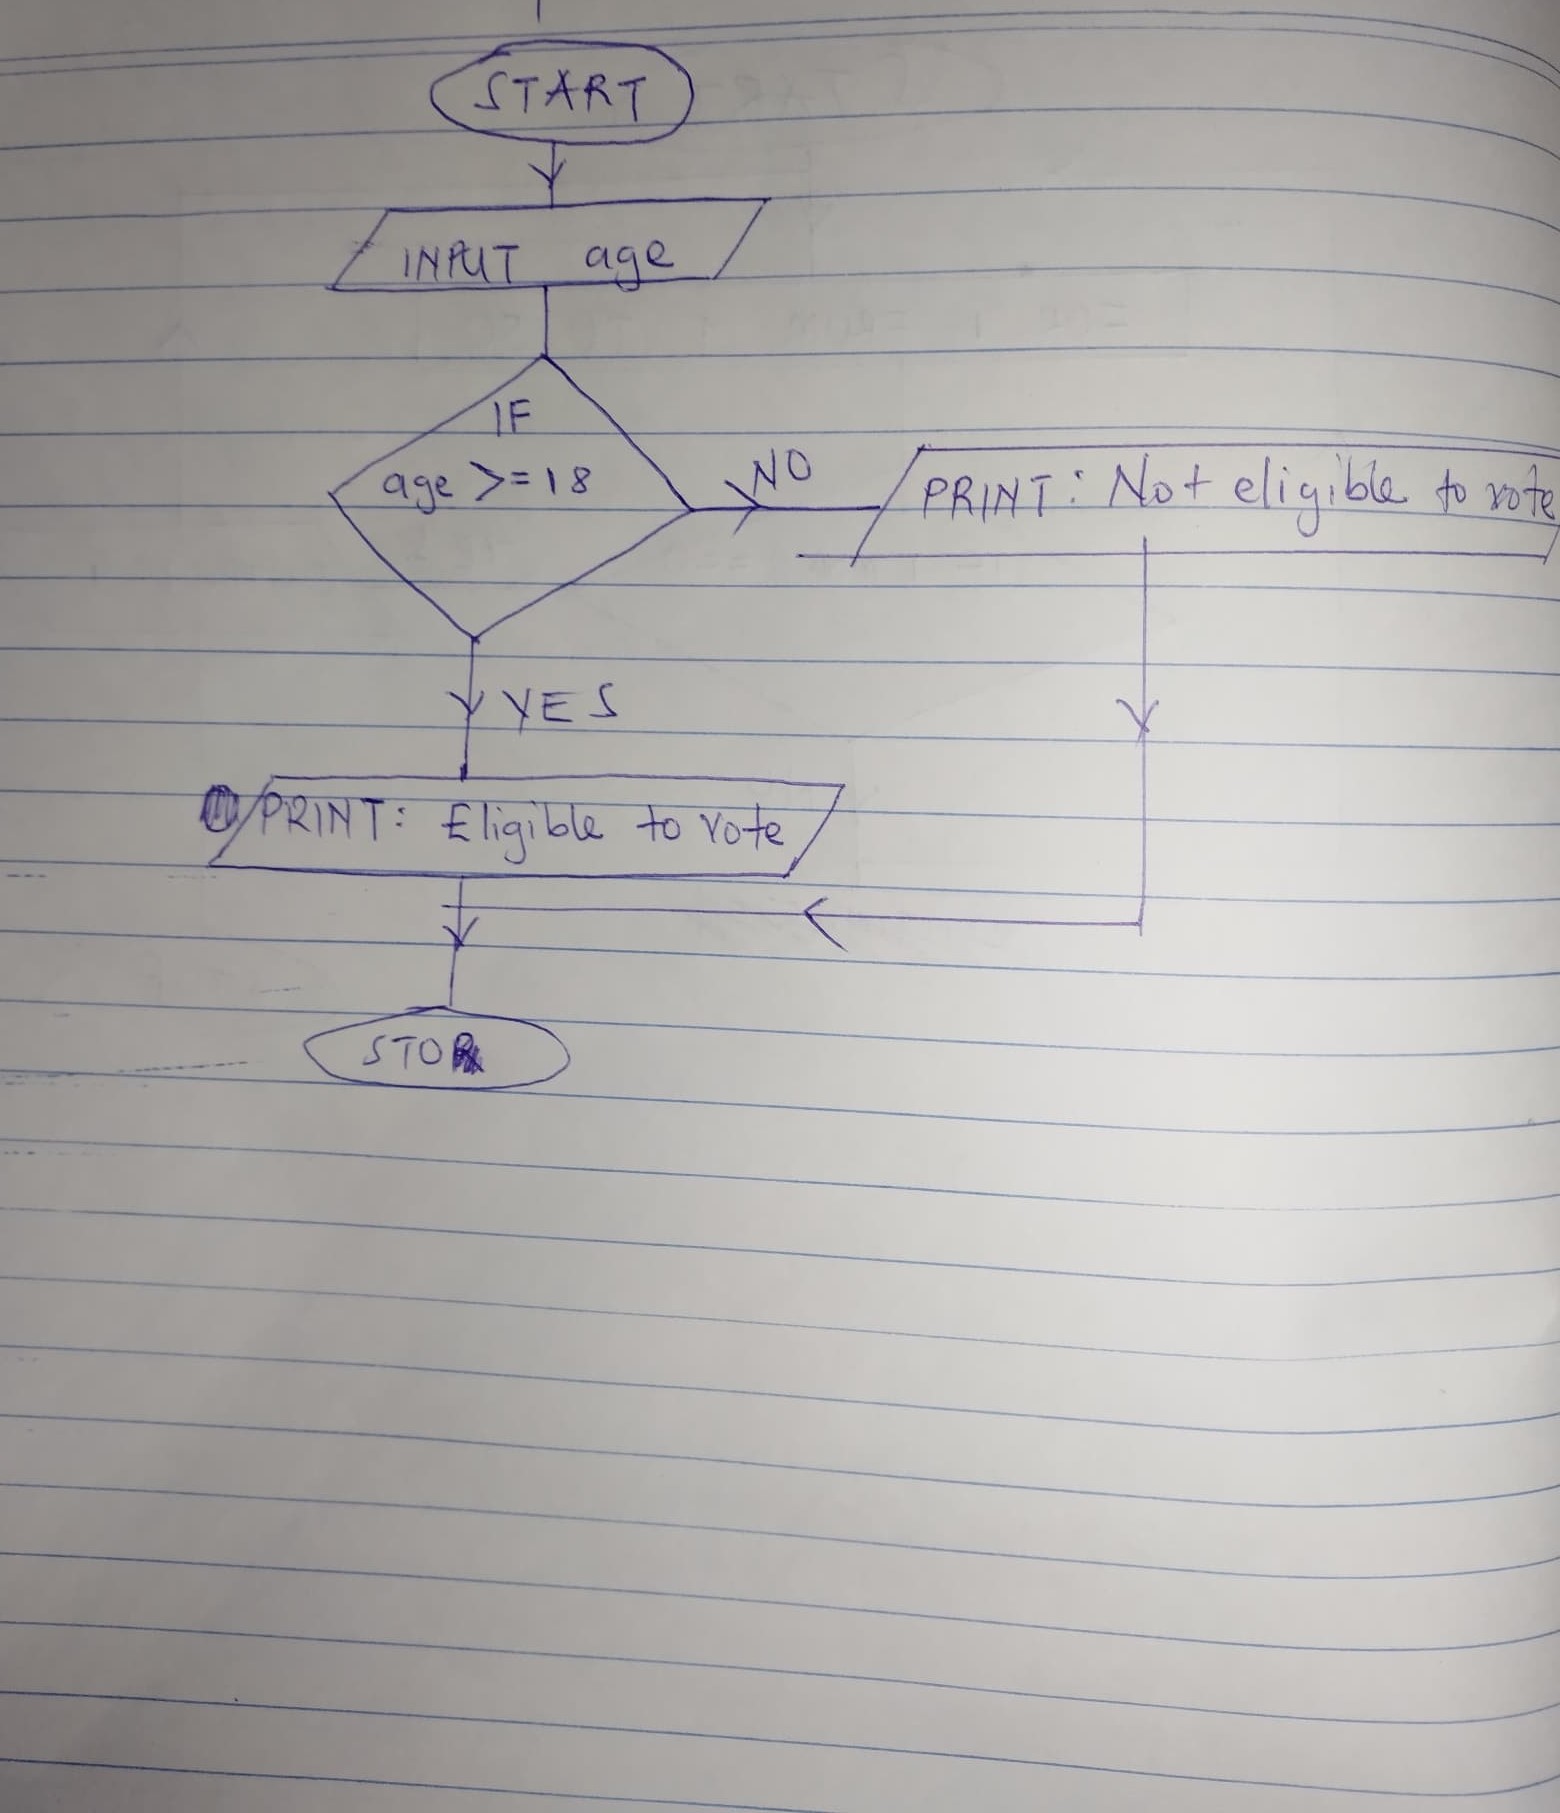 START
INPUT age
IF
age >=18
NO
PRINT: Not eligible to vote
YES
PRINT: Eligible to vote
STOP